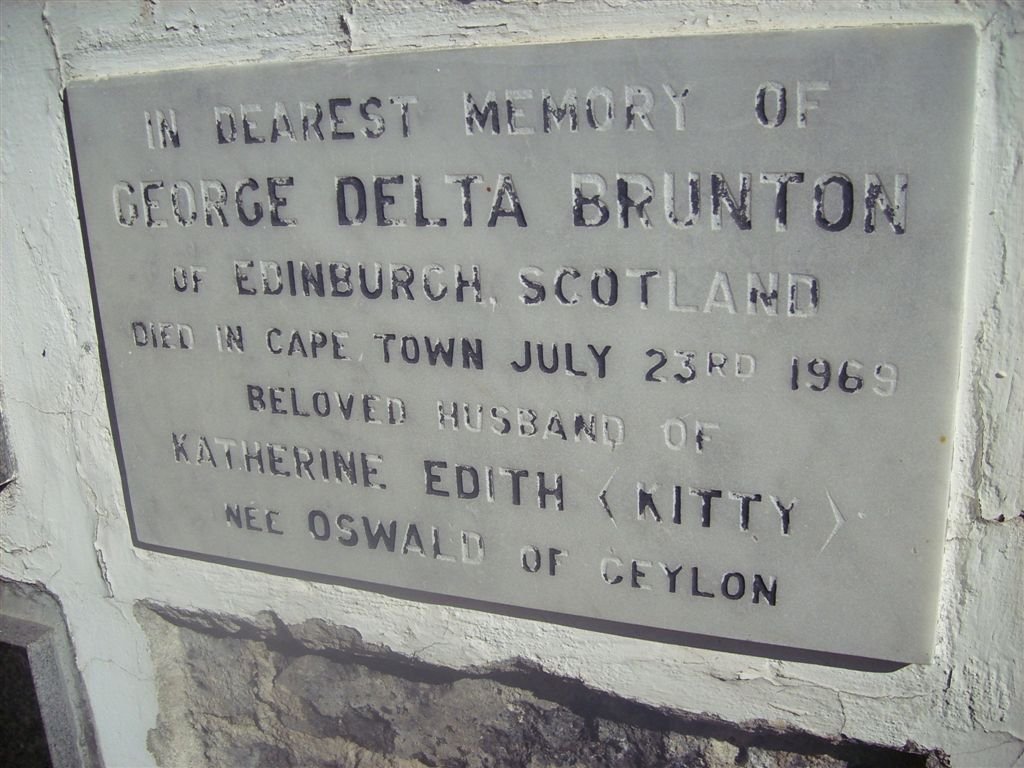 IN DEAREST MEMORY OF
GEORGE DELTA BRUNTON
OF EDINBURGH, SCOTLAND
DIED IN CAPE TOWN JULY 23RD 1969
BELOVED HUSBAND OF
KATHERINE EDITH (KITTY)
NEE OSWALD OF CEYLON